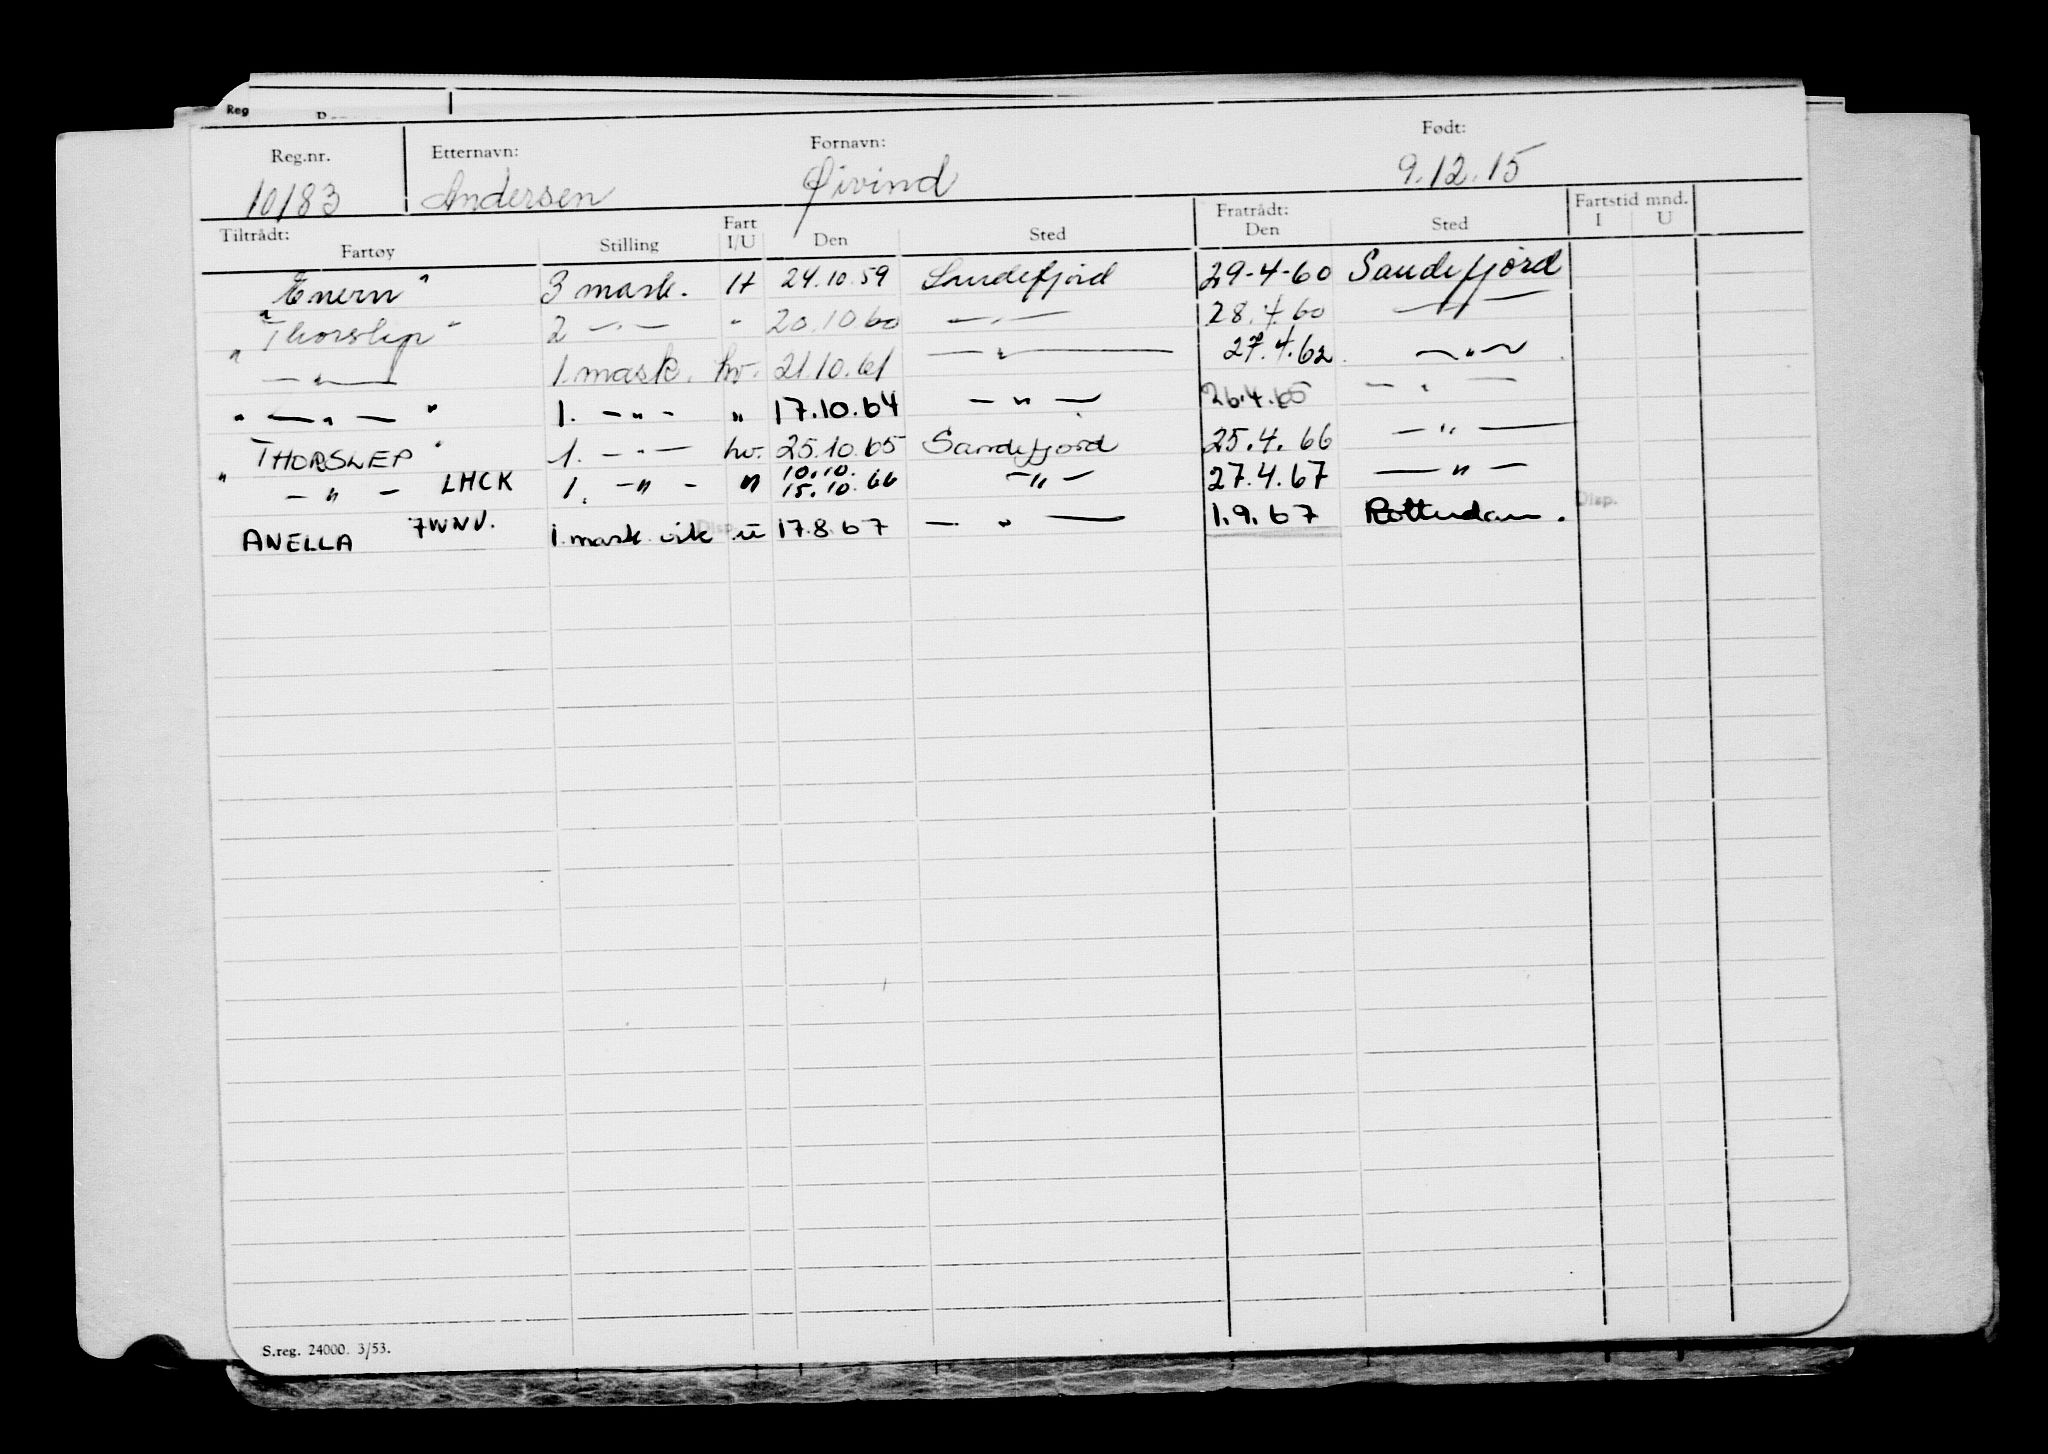 Reg
Reg.nr. Etternavn: Fornavn: Født:
10183 Andersen Øivind 9.12.15
Tiltrådt: Fart Fratrådt: Fartstid mnd.
Fartøy Stilling I/U Den Sted Den Sted I U
Enern" 3 mask. H 24.10.59 Sandefjord 29-4-60 Sandefjord
"Thorslep" 2 — . — " 20.10.60 — " — 28.4.60 — " —
" — " — 1. mask. hv. 21.10.61 — " — 27.4.62. — " —
" — " — " 1. — " — " 17.10.64 — " — 26.4.65 — " —
THORSLEP" 1. — " — hv. 25.10.65 Sandefjord 25.4.66 — " —
" — " — LHCK 1. — " — " 10.10. 15.10.66 — " — 27.4.67 — " —
ANELLA 1. mask. vik u 17.8.67 — " — 1.9.67 Rotterdam. Disp.
S.reg. 24000. 3/53.